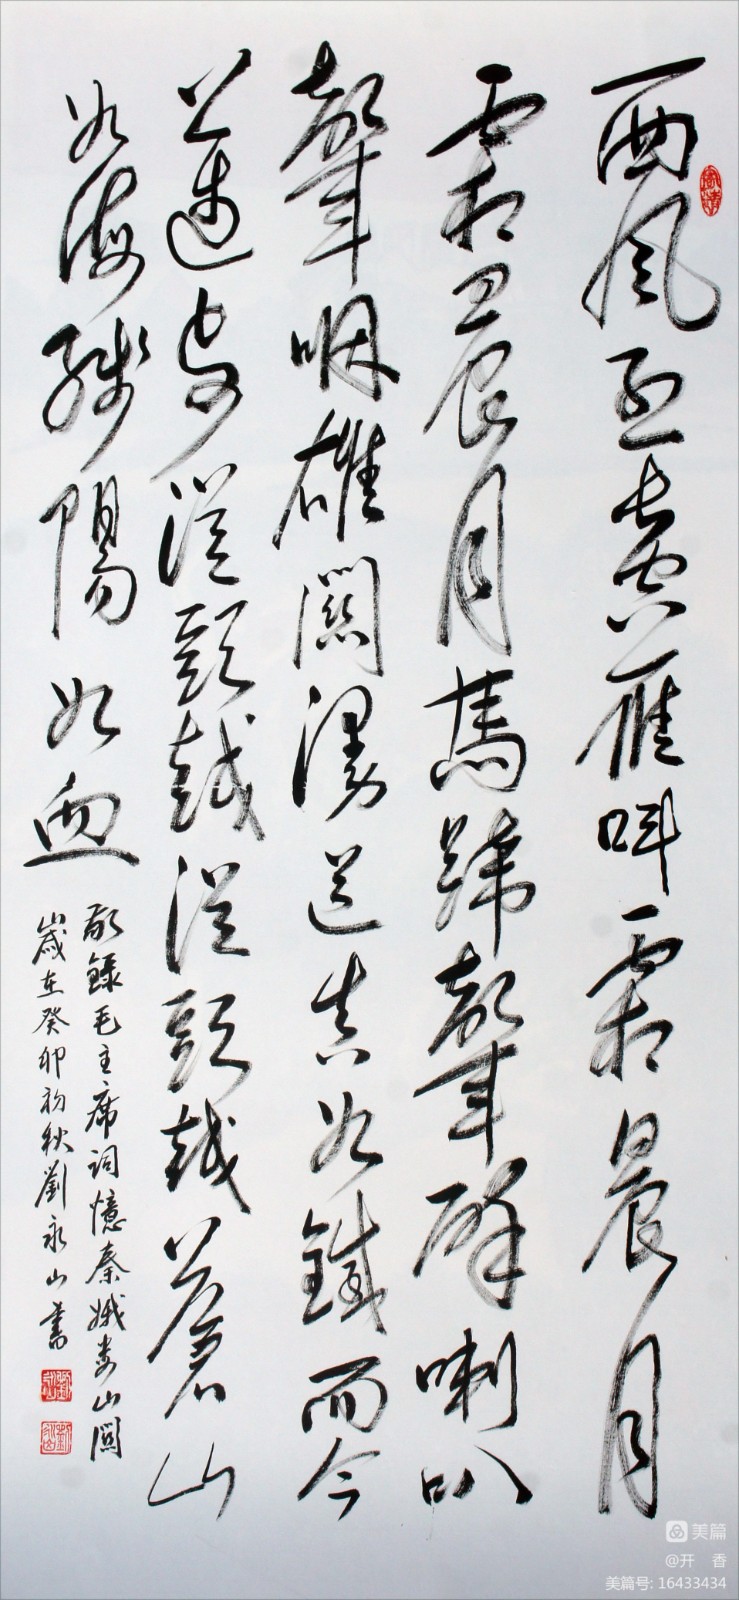 西風烈長空雁叫霜晨月
霜晨月馬蹄聲碎喇叭
聲咽雄關漫道真如鐵而今
邁步從頭越從頭越蒼山
如海殘陽如血
敬錄毛主席詞憶秦娥娄山關
歲在癸卯初秋劉永山書
美篇
@开 香
美篇号: 16433434